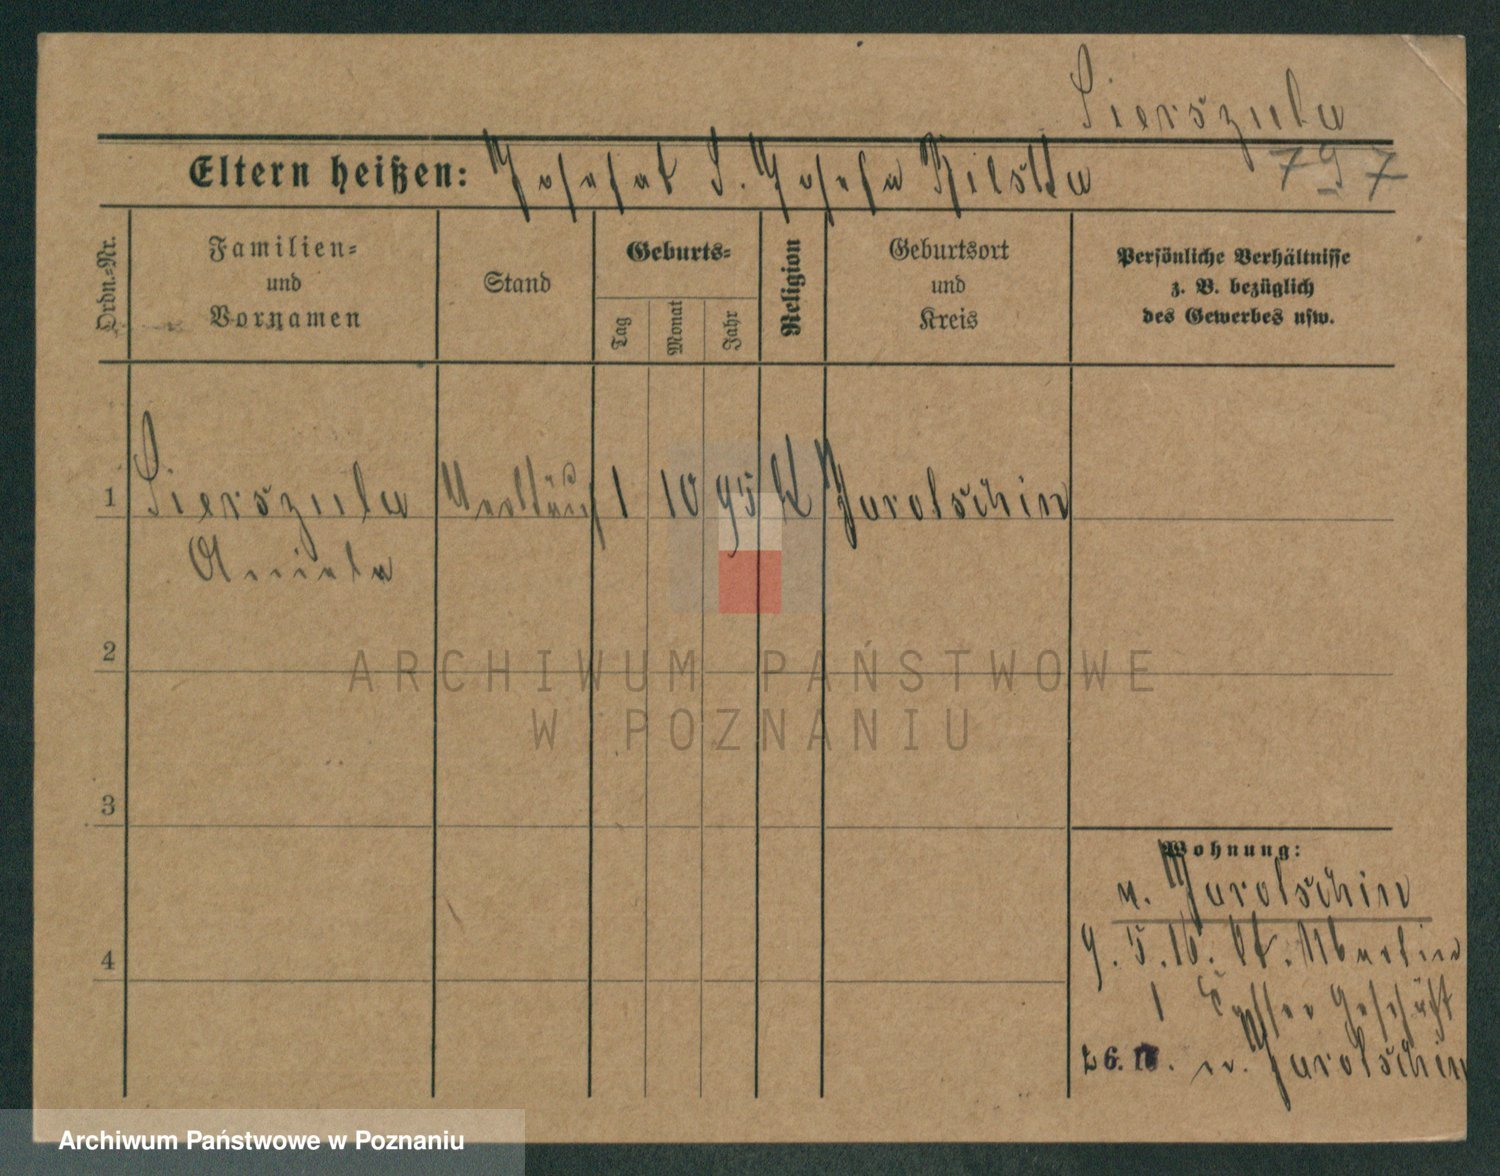 Sierszula
797
Eltern heißen: Josefat S. Josefa Kilska
Ordn.-Nr.
Familien-
und
Vornamen
Stand
Geburts-
Tag
Monat
Jahr
Religion
Geburtsort
und
Kreis
Persönliche Verhältnisse
z. B. bezüglich
des Gewerbes usw.
1 Sierszula 1 10 95 K Jarotschin
Aniela
2
3
4
Wohnung:
v. Jarotschin
9. 5. 16. St. Martin
1 Geschäft
n. Jarotschin
ARCHIWUM PAŃSTWOWE
W POZNANIU
Archiwum Państwowe w Poznaniu